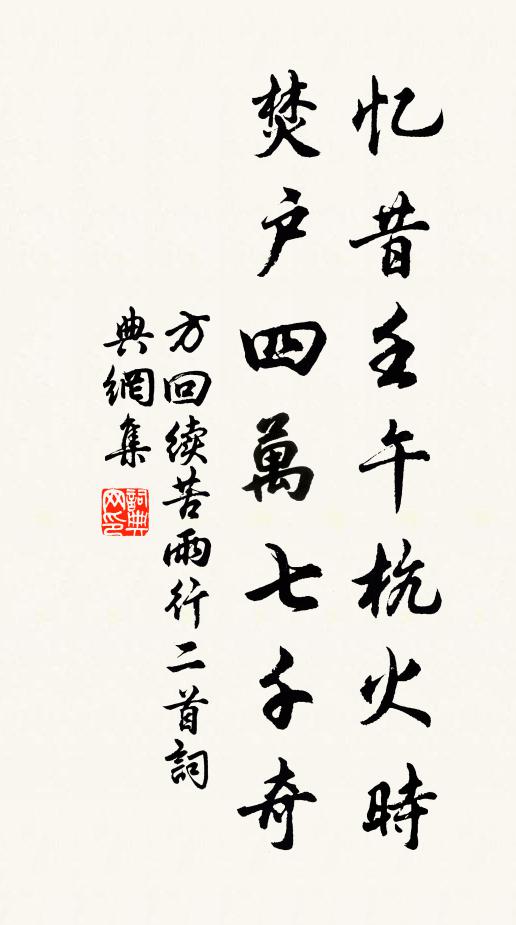 忆昔壬午杭火時
焚户四萬七千奇
方回续苦雨行二首詞
典網集
詞典网印